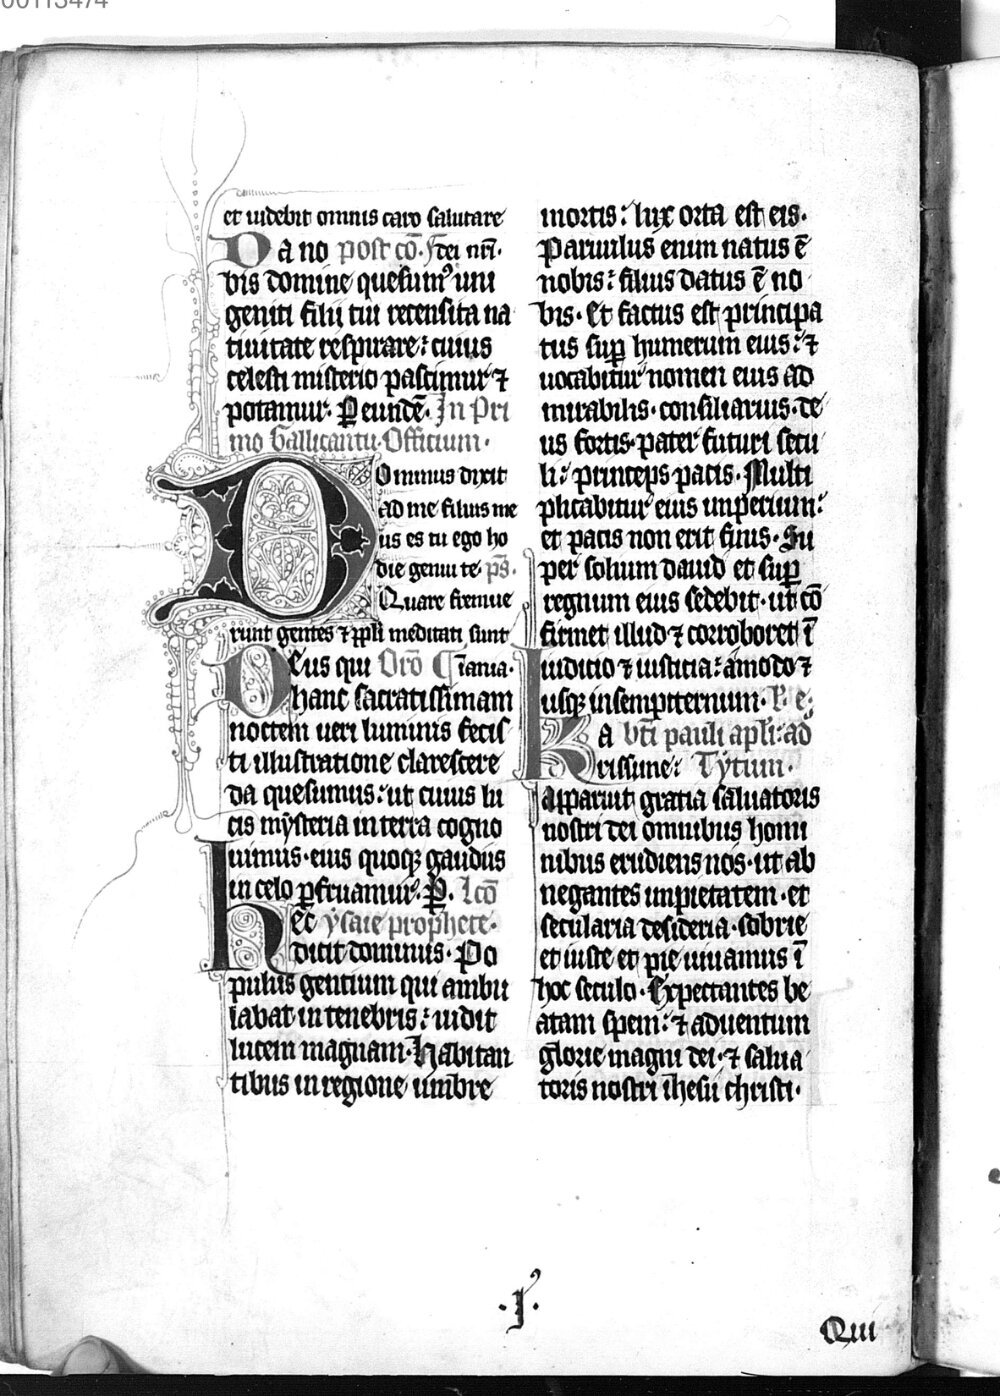 00113474
et uidebit omnis caro salutare
Da no post cō. dei nr̄i.
bis domine quesumꝰ uni
geniti filij tui recensita na
tiuitate respirare: cuius
celesti misterio pascimur ⁊
potamur. P̲ eundē. In Pri
mo Gallicantu. Officium.
Dominus dixit
ad me filius me
us es tu ego ho
die genui te. ps̄.
Quare fremue
runt gentes ⁊ pp̄li meditati sunt
Deus qui Orō Gl̄ania.
hanc sacratissimam
noctem ueri luminis fecis
ti illustratione clarescere
da quesumus: ut cuius lu
cis mẏsteria in terra cogno
uimus. eius quoqꝫ gaudiis
in celo ꝑfruamur. P̲. Lcō
Hec ẏsaie prophete.
dicit dominus. Po
pulus gentium qui ambu
labat in tenebris: uidit
lucem magnam. Habitan
tibus in regione umbre
mortis: lux orta est eis.
Paruulus enim natus ē
nobis: filius datus ē no
bis. Et factus est principa
tus suꝑ humerum eius: ⁊
uocabitur nomen eius ad
mirabilis. consiliarius. de
us fortis. pater futuri secu
li: princeps pacis. Multi
plicabitur eius imperium:
et pacis non erit finis. Su
per solium dauid et suꝑ
regnum eius sedebit. ut cō
firmet illud ⁊ corroboret ī
iudicio ⁊ iusticia: amodo ⁊
usqꝫ in sempiternum.
Ka bt̄i pauli apl̄i: ad
rissime: Tẏtum.
Apparuit gratia saluatoris
nostri dei omnibus homi
nibus erudiens nos. ut ab
negantes impietatem. et
secularia desideria. sobrie
et iuste et pie uiuamus ī
hoc seculo. Expectantes be
atam spem: ⁊ aduentum
glorie magni dei. ⁊ salua
toris nostri ih̄esu christi.
.I.
Qui